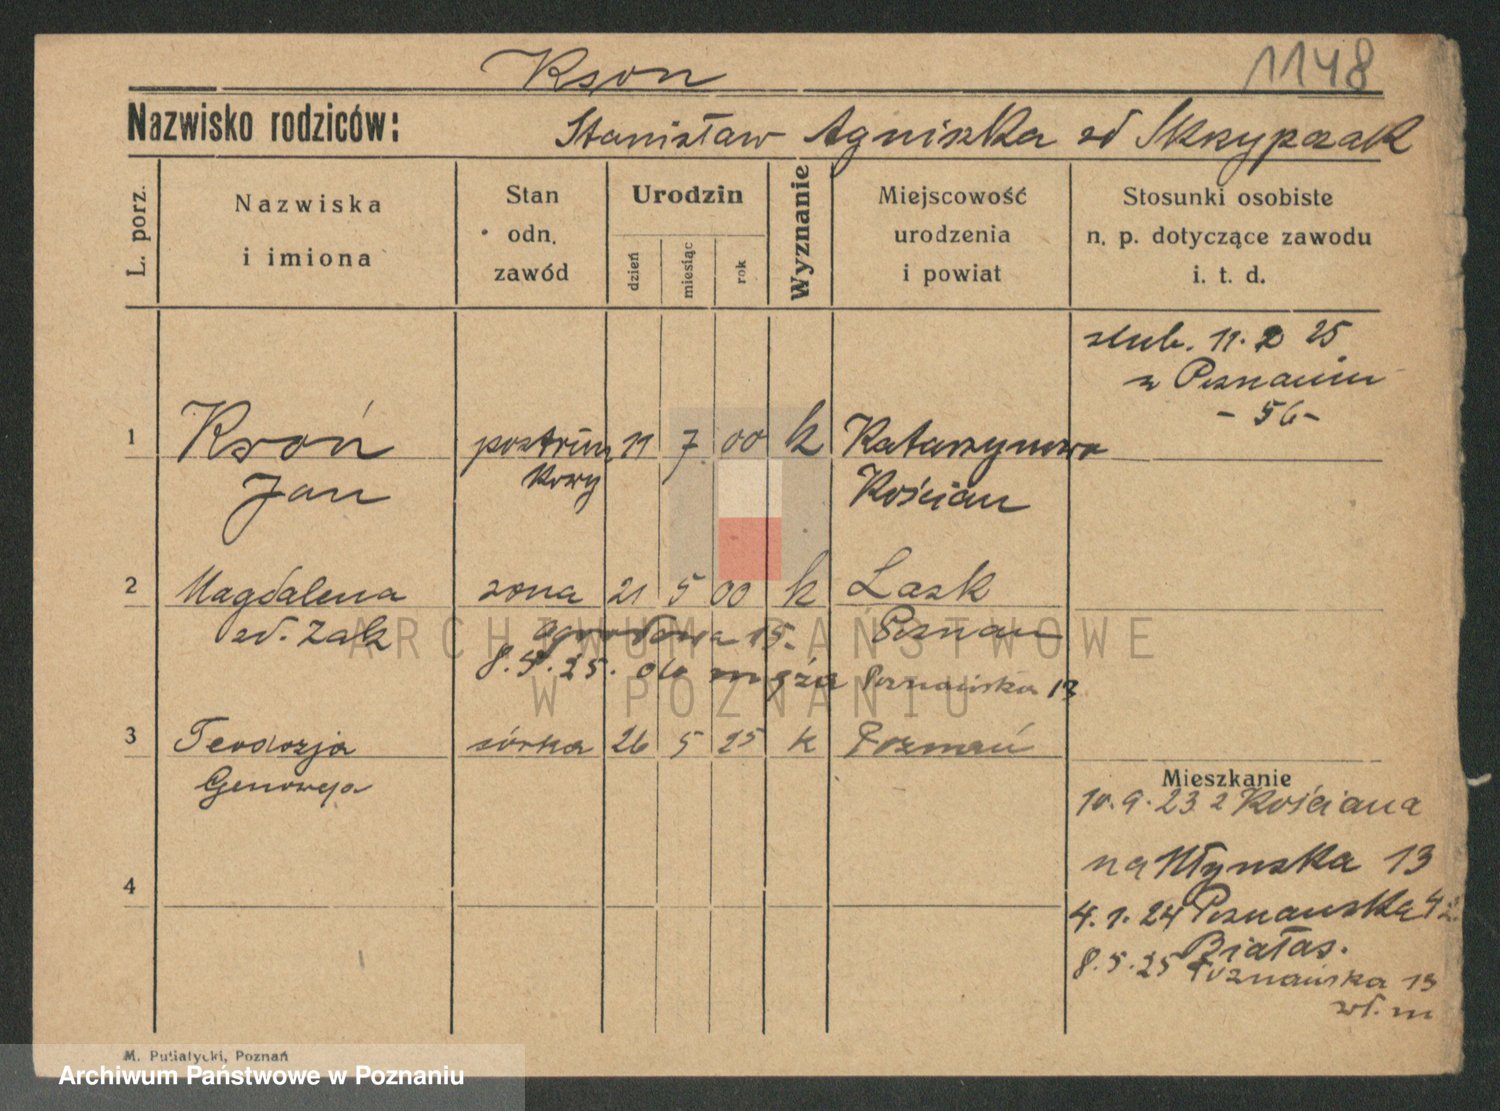 Kson
1148
Nazwisko rodziców: Stanisław Agniszka zd Skrzypczak
L. porz.
Nazwiska
i imiona
Stan
odn.
zawód
Urodzin
dzień
miesiąc
rok
Wyznanie
Miejscowość
urodzenia
i powiat
Stosunki osobiste
n. p. dotyczące zawodu
i. t. d.
slub. 11. 2 25
w Poznaniu
- 56 -
1 Ksoń 11 7 00 k Katarzynowo
Jan Kościan
2 Magdalena zona 21 5 00 k Lask
zd. Żak Ogrodowa 15. Poznań
8.5.25. do męża Poznańska 13
3 Teodozja córka 26 5 25 k Poznań
Genowefa
Mieszkanie
10.9.23 z Kościana
na Młynska 13
4
4.1.24 Poznanska 42
Białas.
8.5.25 Poznańska 13
wł. m
M. Putiatycki, Poznań
ARCHIWUM PAŃSTWOWE
W POZNANIU
Archiwum Państwowe w Poznaniu